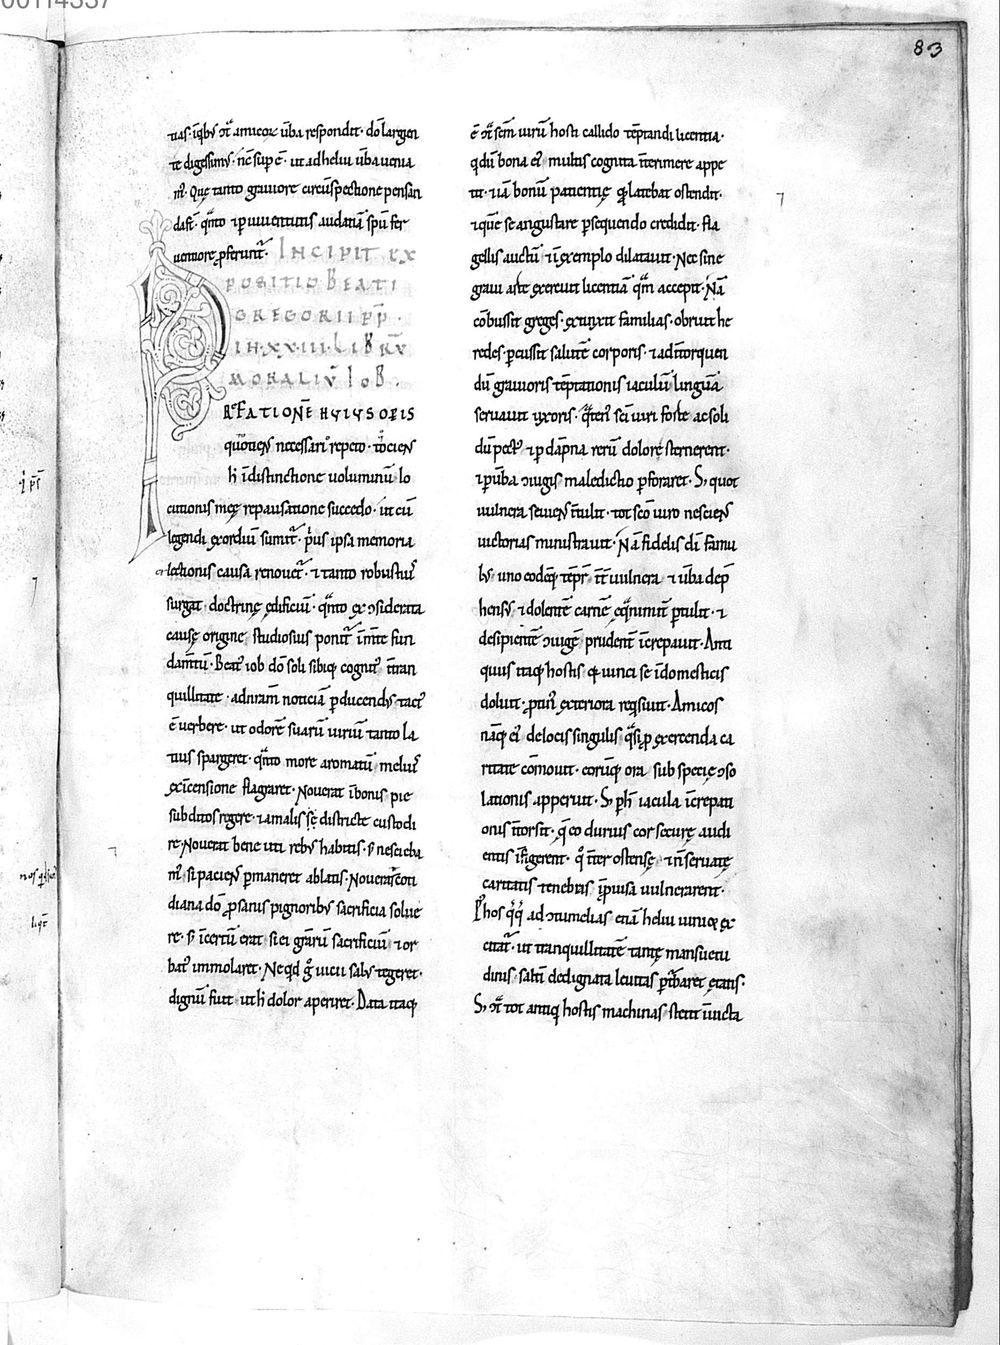 00114337
83
tias· ı̄qibꝰ ↄt̃ amicoꝝ ūba respondit· dō largien
te digessimꝰ· nc̄ sup ē· ut ad heliu ūba uenia
mꝰ· Quę tanto grauiore circūspectione pensan
da st̄· qͣnto ⁊ p iuuentutis audatiā spū fer
uentiore ꝓferunt᷑· INCIPIT EX
POSITIO BEATI
GREGORII PP̄·
IN·XXIII·LIBRŪ
MORALIŪ IOB·
PREFATIONĒ HUIUS OPERIS
quotiens necessariͦ repeto· totiens
h̄ ı̄ distinctione uoluminū lo
cutionis męę repausatione succedo· ut cū
legendi exordiū sumit᷑· pͥus ipsa memoria
lectionis causa renouet᷑· ⁊ tanto robustiꝰ
surgat doctrinę ędificiū· qͣnto ex ↄsiderata
causę origine studiosius ponit᷑ ı̄ mt̄e fun
dam̄tū· Beatꝰ iob dō soli sibiq; cognitꝰ ı̄ tran
quillitate· ad nr̄am noticiā ꝑducendꝰ· tactꝰ
ē uerbere· ut odorē suarū uiriū tanto la
tius spargeret· qͣnto more aromatū meliꝰ
ex ı̄censione flagraret· Nouerat ı̄ bonis pie
subditos regere· ⁊ a malis sę districte custodi
re· Nouerat bene uti rebꝰ habitis· s; nescieba
mꝰ si paciens ꝑmaneret ablatis· Nouerat coti
diana dō ꝓ sanis pignoribꝰ sacrificia solue
re· s; ı̄certū erat si ei gr̄arū sacrificiū ⁊ or
batꝰ immolaret· Ne qd̄ gͦ uicii salꝰ tegeret·
dignū fuit ut h̄ dolor aperiret· Data itaq;
ē ↄͣ sc̄m uirū hosti callido tēptandi licentia·
q dū bona eiꝰ multis cognita ı̄terimere appe
tit· ⁊ iā bonū patientię q; latebat ostendit·
⁊ quē se angustare ꝑsequendo credidit· fla
gellis auctū ⁊ ı̄ exemplo dilatauit· Nec sine
graui arte exercuit licentiā qͣm accepit· Nā
cōbussit greges· extinxit familias· obruit he
redes· ꝑcussit salutē corporis· ⁊ ad ı̄torquen
dū grauioris tēptationis iaculū linguā
seruauit uxoris· qͣtenꝰ sc̄i uiri forte ac soli
dū pectꝰ ⁊ p dāpna rerū dolore sterneret·
⁊ p ūba ↄiugis maledictio ꝑforaret· S; quot
uulnera seuiens ı̄tulit· tot sc̄o uiro nesciens
uictorias ministrauit· Nā fidelis dī famu
lꝰ· uno eodēq; tēpr̄ ı̄t uulnera ⁊ ūba dep̄
hensꝰ ⁊ dolentē carnē ęqͣnimit ꝑtulit· ⁊
desipientē ↄiugē prudent̄ ı̄crepauit· Anti
quus itaq; hostis q; uinci se ı̄ domesticis
doluit· ꝓtinꝰ exteriora reqͥsiuit· Amicos
nāq; eiꝰ de locis singulis qͣsi ꝓ exercenda ca
ritate cōmouit· eorūq; ora sub specię ↄso
lationis apperuit· S; p h̄ iacula ı̄crepati
onis ı̄torsit· q̄ eo durius cor securę audi
entis ı̄figerent· qͦ ı̄ter ostensę ⁊ n̄ seruatę
caritatis tenebris ı̄prouisa uulnerarent·
P hos qͦq; ad ↄtumelias etiā heliu iunior ex
citat᷑· ut tranquillitatē tantę mansuetu
dinis· saltı̄ dedignata leuitas ꝑturbaret ętatis·
S; ↄͣ tot antiq̇ hostis machinas stetit ı̄uicta